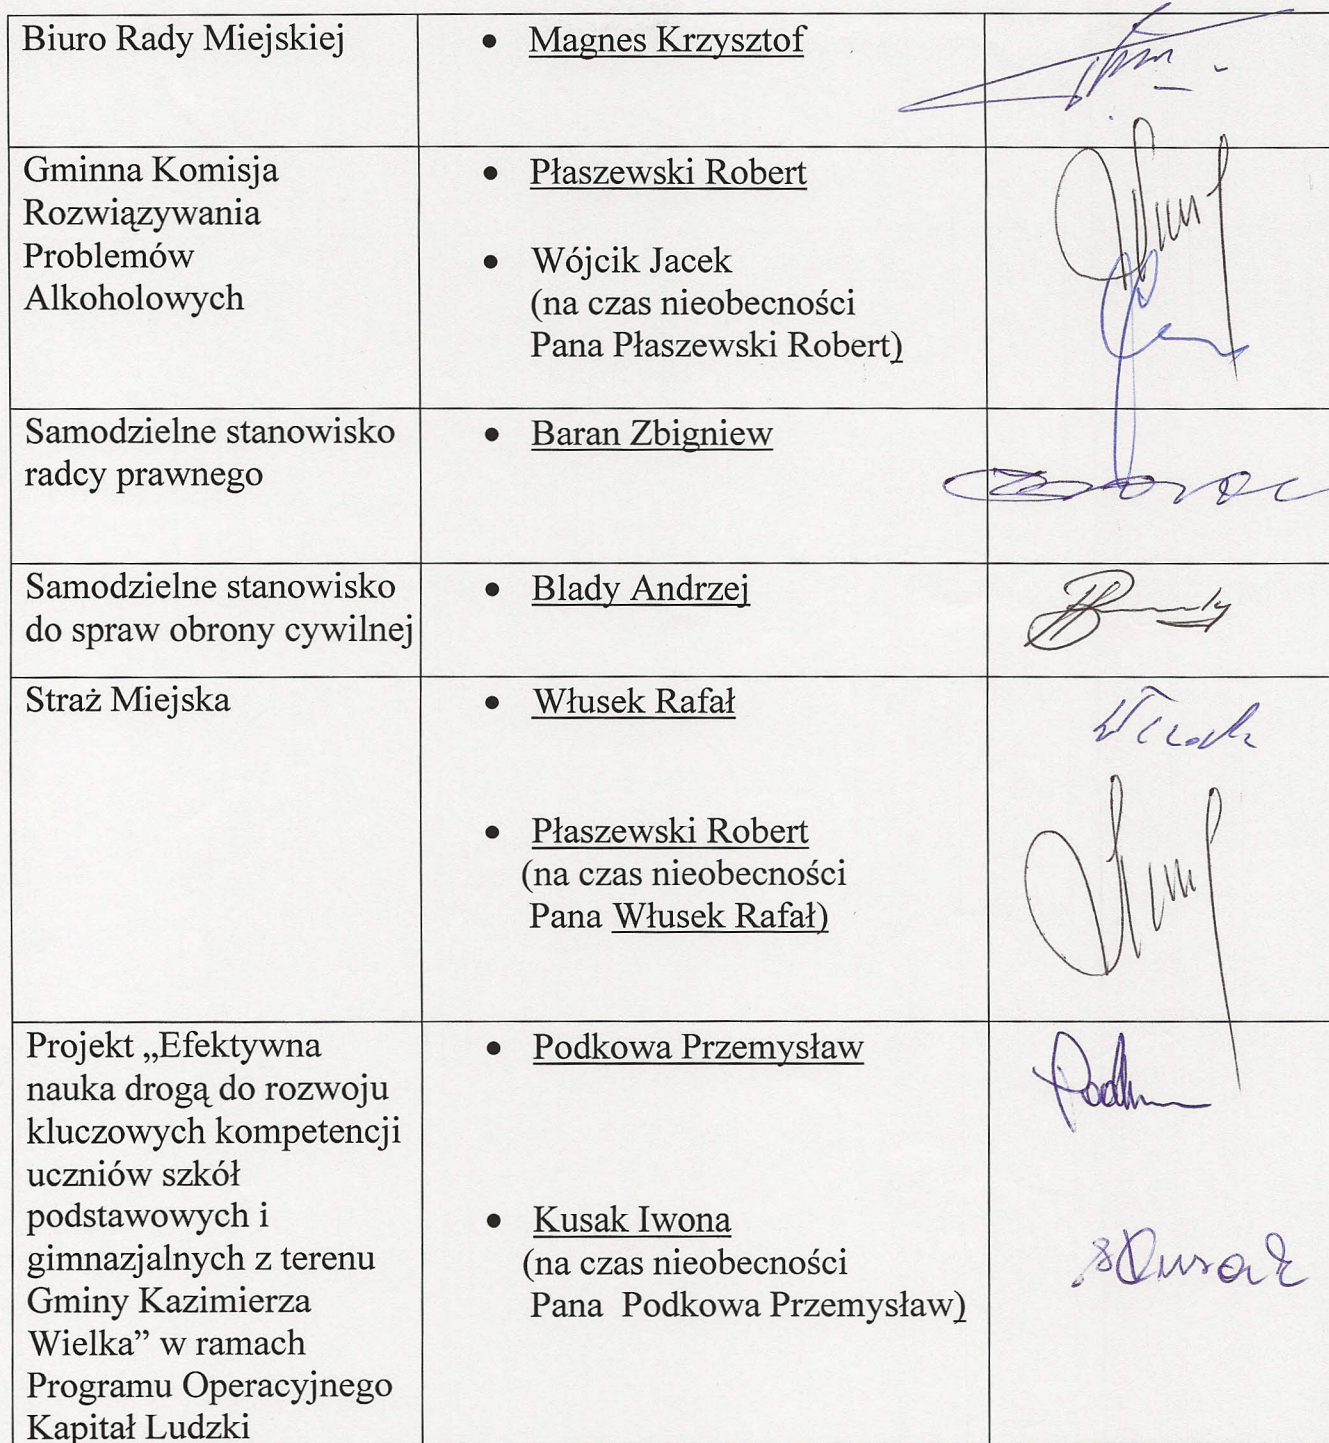 Biuro Rady Miejskiej
• Magnes Krzysztof
Gminna Komisja
Rozwiązywania
Problemów
Alkoholowych
• Płaszewski Robert
• Wójcik Jacek
(na czas nieobecności
Pana Płaszewski Robert)
Samodzielne stanowisko
radcy prawnego
• Baran Zbigniew
Samodzielne stanowisko
do spraw obrony cywilnej
• Blady Andrzej
Straż Miejska
• Włusek Rafał
• Płaszewski Robert
(na czas nieobecności
Pana Włusek Rafał)
Projekt „Efektywna
nauka drogą do rozwoju
kluczowych kompetencji
uczniów szkół
podstawowych i
gimnazjalnych z terenu
Gminy Kazimierza
Wielka” w ramach
Programu Operacyjnego
Kapitał Ludzki
• Podkowa Przemysław
• Kusak Iwona
(na czas nieobecności
Pana Podkowa Przemysław)